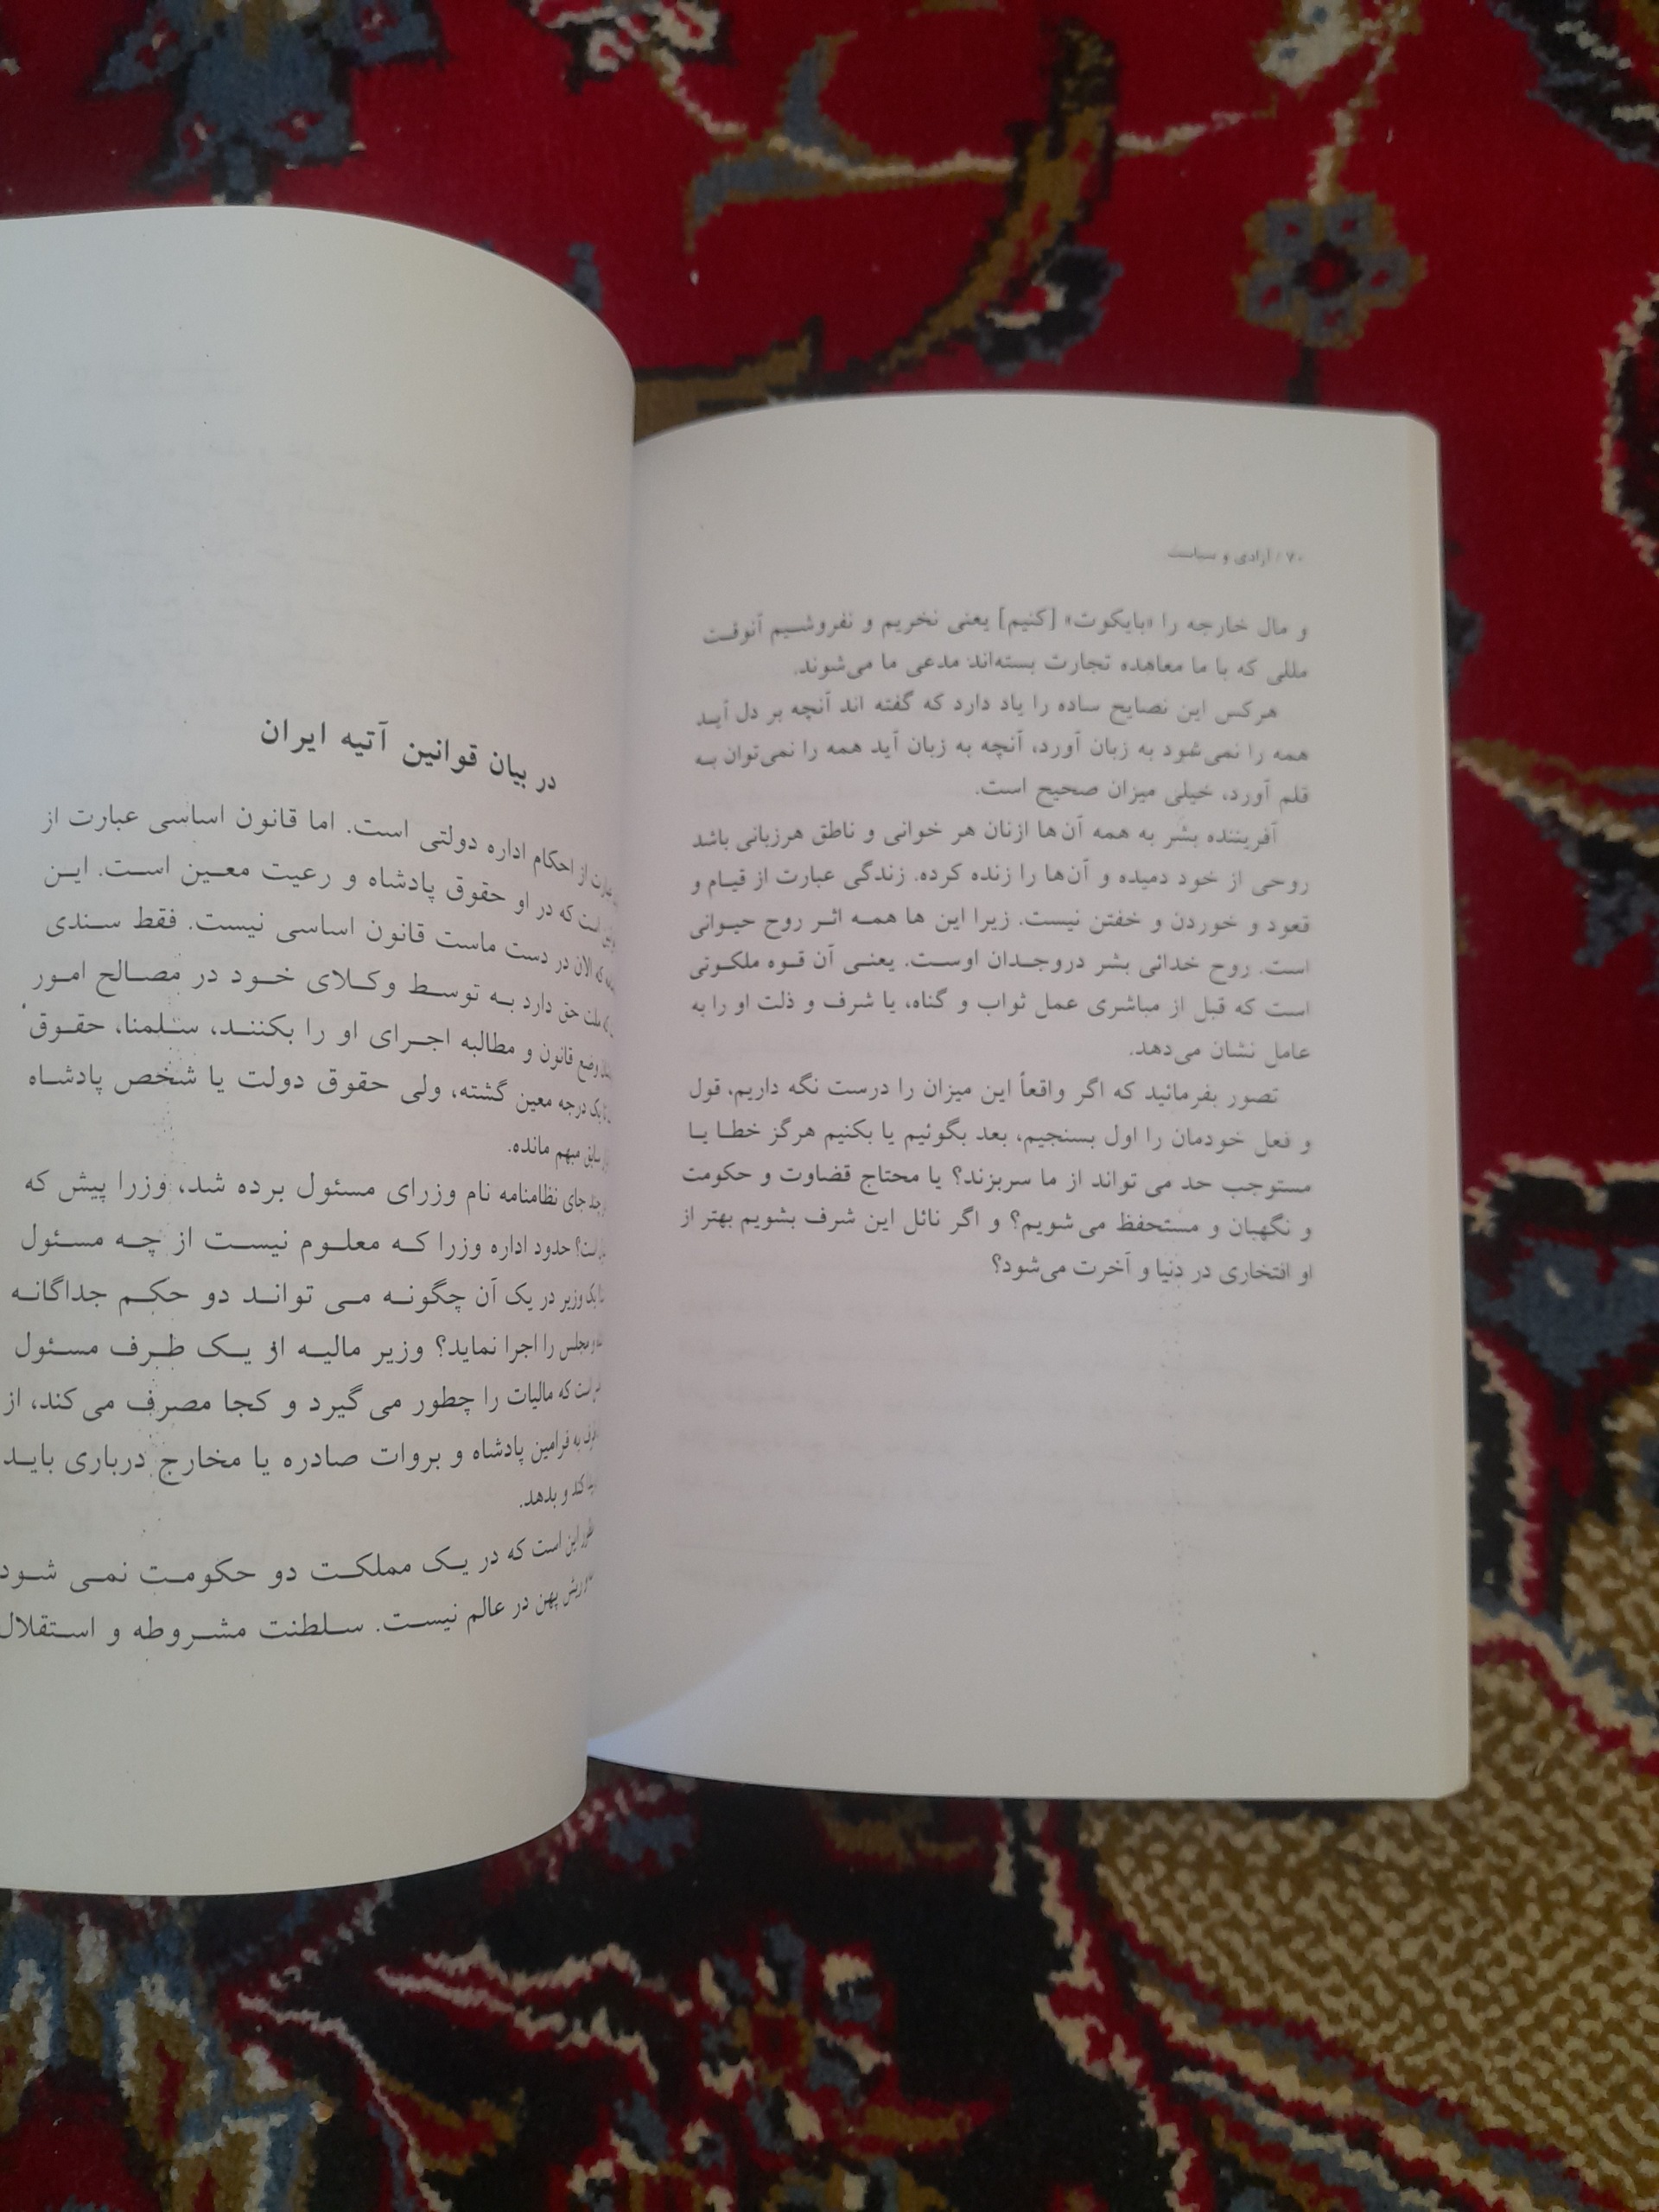 ۷۰ / آزادی و سیاست
و مال خارجه را «بایکوت» [کنیم] یعنی نخریم و نفروشیم آنوقت
مللی که با ما معاهده تجارت بسته‌اند مدعی ما می‌شوند.
هرکس این نصایح ساده را یاد دارد که گفته اند آنچه بر دل آید
همه را نمی‌شود به زبان آورد، آنچه به زبان آید همه را نمی‌توان به
قلم آورد، خیلی میزان صحیح است.
آفریننده بشر به همه آن‌ها ازنان هر خوانی و ناطق هرزبانی باشد
روحی از خود دمیده و آن‌ها را زنده کرده. زندگی عبارت از قیام و
قعود و خوردن و خفتن نیست. زیرا این ها همه اثر روح حیوانی
است. روح خدائی بشر دروجدان اوست. یعنی آن قوه ملکوتی
است که قبل از مباشری عمل ثواب و گناه، یا شرف و ذلت او را به
عامل نشان می‌دهد.
تصور بفرمائید که اگر واقعاً این میزان را درست نگه داریم، قول
و فعل خودمان را اول بسنجیم، بعد بگوئیم یا بکنیم هرگز خطا یا
مستوجب حد می تواند از ما سربزند؟ یا محتاج قضاوت و حکومت
و نگهبان و مستحفظ می‌شویم؟ و اگر نائل این شرف بشویم بهتر از
او افتخاری در دنیا و آخرت می‌شود؟
در بیان قوانین آتیه ایران
عبارت از احکام اداره دولتی است. اما قانون اساسی عبارت از
است که در او حقوق پادشاه و رعیت معین است. این
که الان در دست ماست قانون اساسی نیست. فقط سندی
ملت حق دارد به توسط وکلای خود در مصالح امور
وضع قانون و مطالبه اجرای او را بکنند، سلمنا، حقوق
یک درجه معین گشته، ولی حقوق دولت یا شخص پادشاه
سابق مبهم مانده.
چند جای نظامنامه نام وزرای مسئول برده شد، وزرا پیش که
است؟ حدود اداره وزرا که معلوم نیست از چه مسئول
یک وزیر در یک آن چگونه می تواند دو حکم جداگانه
مجلس را اجرا نماید؟ وزیر مالیه از یک طرف مسئول
است که مالیات را چطور می گیرد و کجا مصرف می کند، از
به فرامین پادشاه و بروات صادره یا مخارج درباری باید
کند و بدهد.
این است که در یک مملکت دو حکومت نمی شود
پهن در عالم نیست. سلطنت مشروطه و استقلال